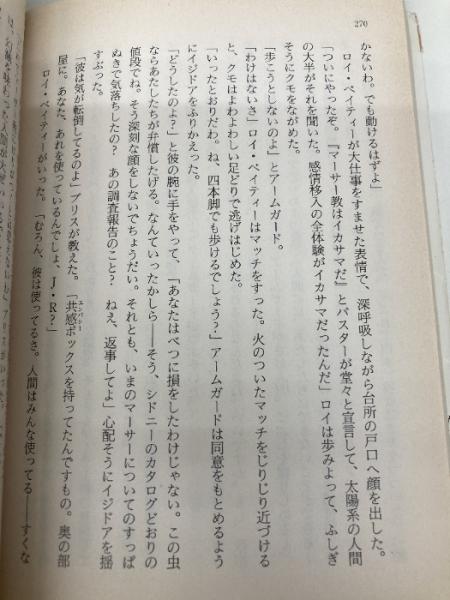 270
かないわ。でも動けるはずよ」
ロイ・ベイティーが大仕事をすませた表情で、深呼吸しながら台所の戸口へ顔を出した。
「ついにやったぞ。『マーサー教はイカサマだ』とバスターが堂々と宣言して、太陽系の人間
の大半がそれを聞いた。感情移入の全体験がイカサマだったんだ」ロイは歩みよって、ふしぎ
そうにクモをながめた。
「歩こうとしないのよ」とアームガード。
「わけはないさ」ロイ・ベイティーはマッチをすった。火のついたマッチをじりじり近づける
と、クモはよわよわしい足どりで逃げはじめた。
「いったとおりだわ。ね、四本脚でも歩けるでしょう？」アームガードは同意をもとめるよう
にイジドアをふりかえった。
「どうしたのよ？」と彼の腕に手をやって、「あなたはべつに損をしたわけじゃない。この虫
ならあたしたちが弁償したげる。なんていったかしら——そう、シドニーのカタログどおりの
値段でね。そう深刻な顔をしないでちょうだい。それとも、いまのマーサーについてのすっぱ
ぬきで気落ちしたの？　あの調査報告のこと？　ねえ、返事してよ」心配そうにイジドアを揺
すぶった。
「彼は気が転倒してるのよ」プリスが教えた。「共感ボックスを持ってたんですもの。奥の部
エンパシー
屋に。あなた、あれを使っているんでしょ、J・R？」
ロイ・ベイティーがいった。「むろん、彼は使ってるさ。人間はみんな使ってる——すくな